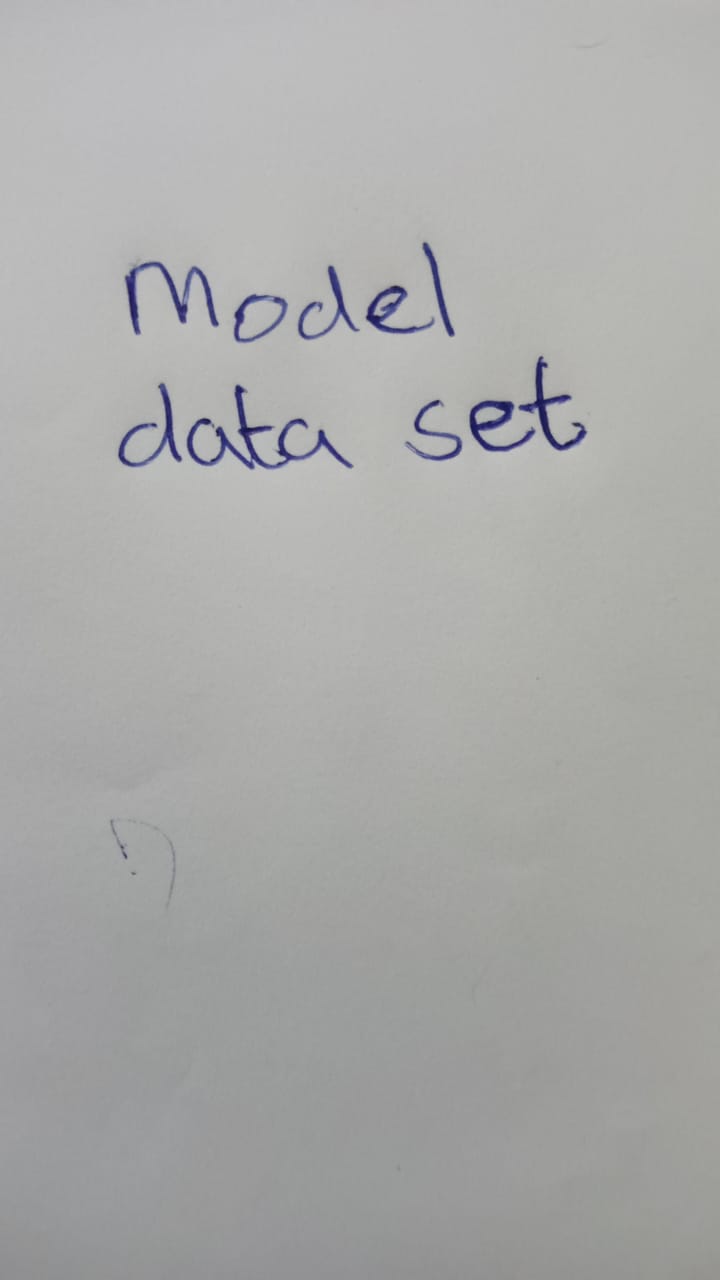 Model
data set